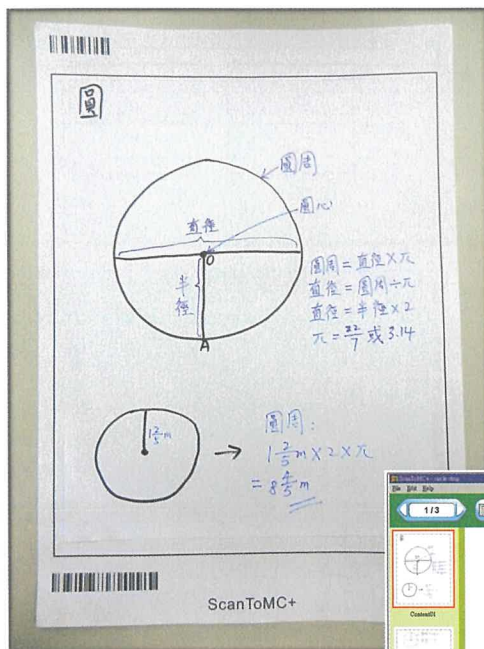 圓
圓周
圓心
直徑
O
半徑
A
圓周=直徑×π
直徑=圓周÷π
直徑=半徑×2
π=22/7 或 3.14
1 2/5 m
圓周:
1 2/5 m × 2 × π
= 8 4/5 m
ScanToMC+
File Edit Help
1/3
Content01